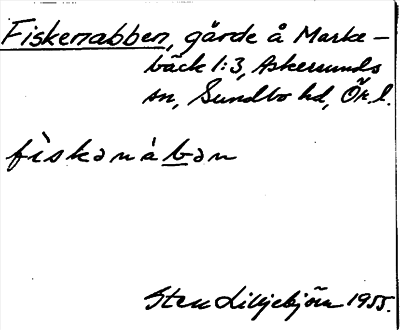 Fiskenabben, gärde å Marke-
bäck 1:3, Askersunds
sn, Sundbo hd, Ör. l.
fìskənábən
Sten Liljebjörn 1955.